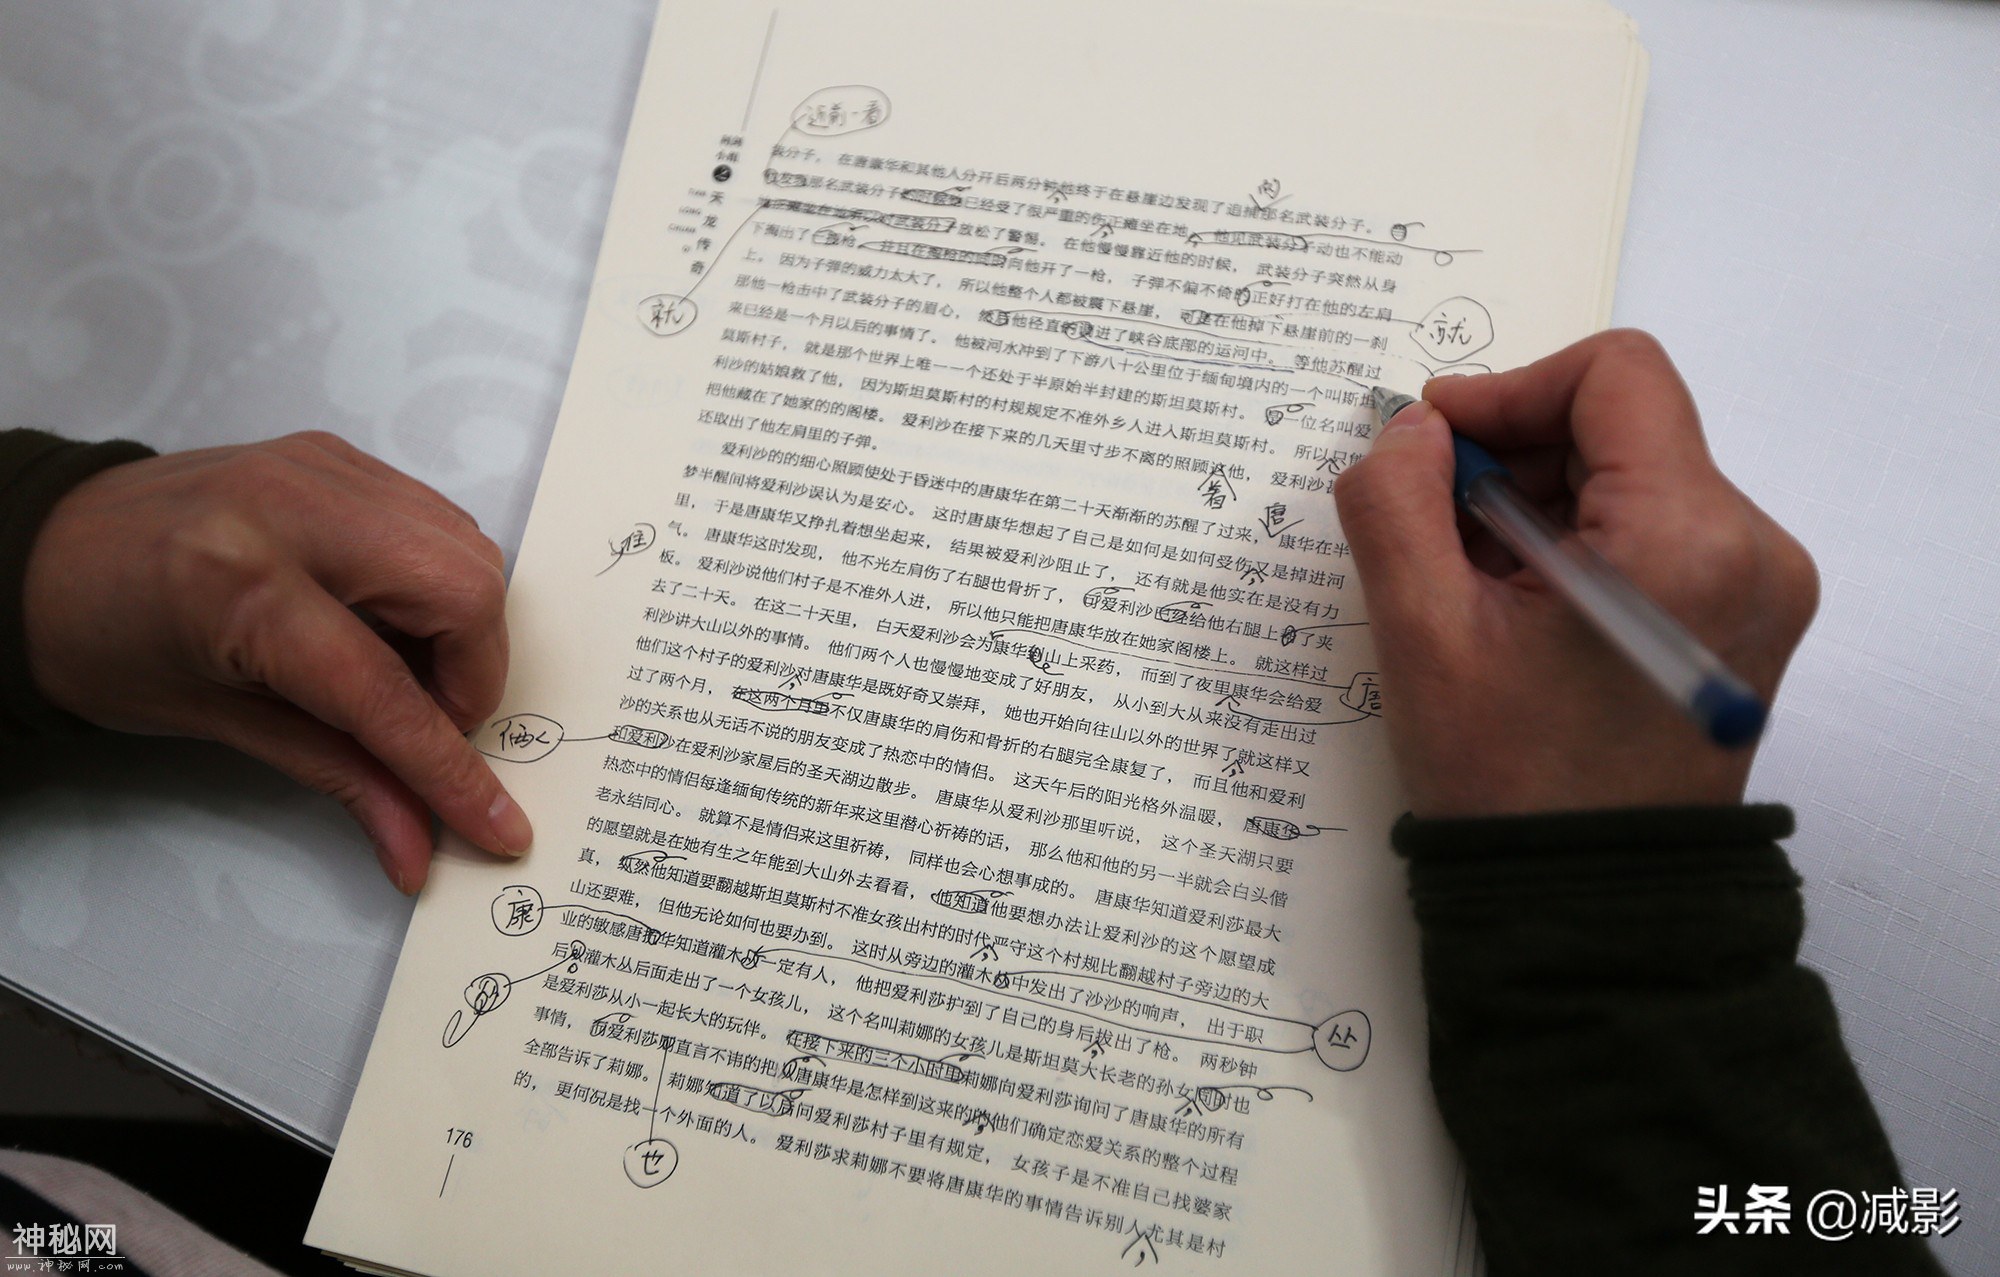 近前一看
天龙传奇
装分子。 在唐康华和其他人分开后两分钟他终于在悬崖边发现了追捕那名武装分子。
那名武装分子 已经受了很严重的伤正瘫坐在地, 他见武装分子动也不能动
放松了警惕。 在他慢慢靠近他的时候, 武装分子突然从身
下掏出了一把枪, 并且在掏枪的瞬间向他开了一枪, 子弹不偏不倚的正好打在他的左肩
上。 因为子弹的威力太大了, 所以他整个人都被震下悬崖, 可是在他掉下悬崖前的一刹
那他一枪击中了武装分子的眉心, 然后他径直的 进了峡谷底部的运河中。 等他苏醒过
来已经是一个月以后的事情了。 他被河水冲到了下游八十公里位于缅甸境内的一个叫斯坦
莫斯村子, 就是那个世界上唯一一个还处于半原始半封建的斯坦莫斯村。 是一位名叫爱
利沙的姑娘救了他, 因为斯坦莫斯村的村规规定不准外乡人进入斯坦莫斯村。 所以只能
把他藏在了她家的的阁楼。 爱利沙在接下来的几天里寸步不离的照顾 他, 爱利沙
还取出了他左肩里的子弹。
爱利沙的的细心照顾使处于昏迷中的唐康华在第二十天渐渐的苏醒了过来, 康华在半
梦半醒间将爱利沙误认为是安心。 这时唐康华想起了自己是如何是如何受伤又是掉进河
里, 于是唐康华又挣扎着想坐起来, 结果被爱利沙阻止了, 还有就是他实在是没有力
气。 唐康华这时发现, 他不光左肩伤了右腿也骨折了, 可爱利沙已经给他右腿上 了夹
板。 爱利沙说他们村子是不准外人进, 所以他只能把唐康华放在她家阁楼上。 就这样过
去了二十天。 在这二十天里, 白天爱利沙会为康华到山上采药, 而到了夜里康华会给爱
利沙讲大山以外的事情。 他们两个人也慢慢地变成了好朋友, 从小到大从来没有走出过
他们这个村子的爱利沙对唐康华是既好奇又崇拜, 她也开始向往山以外的世界了就这样又
过了两个月, 在这两个月里不仅唐康华的肩伤和骨折的右腿完全康复了, 而且他和爱利
沙的关系也从无话不说的朋友变成了热恋中的情侣。 这天午后的阳光格外温暖, 唐康华
和爱利沙在爱利沙家屋后的圣天湖边散步。 唐康华从爱利沙那里听说, 这个圣天湖只要
热恋中的情侣每逢缅甸传统的新年来这里潜心祈祷的话, 那么他和他的另一半就会白头偕
老永结同心。 就算不是情侣来这里祈祷, 同样也会心想事成的。 唐康华知道爱利莎最大
的愿望就是在她有生之年能到大山外去看看, 他知道他要想办法让爱利莎的这个愿望成
真, 纵然他知道要翻越斯坦莫斯村不准女孩出村的时代严守这个村规比翻越村子旁边的大
山还要难, 但他无论如何也要办到。 这时从旁边的灌木 中发出了沙沙的响声, 出于职
业的敏感唐 华知道灌木 一定有人, 他把爱利莎护到了自己的身后拔出了枪。 两秒钟
后 灌木丛后面走出了一个女孩儿, 这个名叫莉娜的女孩儿是斯坦莫大长老的孙女同时也
是爱利莎从小一起长大的玩伴。 在接下来的三个小时里莉娜向爱利莎询问了唐康华的所有
事情, 而爱利莎 直言不讳的把从唐康华是怎样到这来的 他们确定恋爱关系的整个过程
全部告诉了莉娜。 莉娜知道了以后问爱利莎村子里有规定, 女孩子是不准自己找婆家
的, 更何况是找一个外面的人。 爱利莎求莉娜不要将唐康华的事情告诉别人尤其是村
176
就
就
的
着
唐
住
唐
俩人
康
丛
也
头条 @减影
神秘网
www.神秘网.com